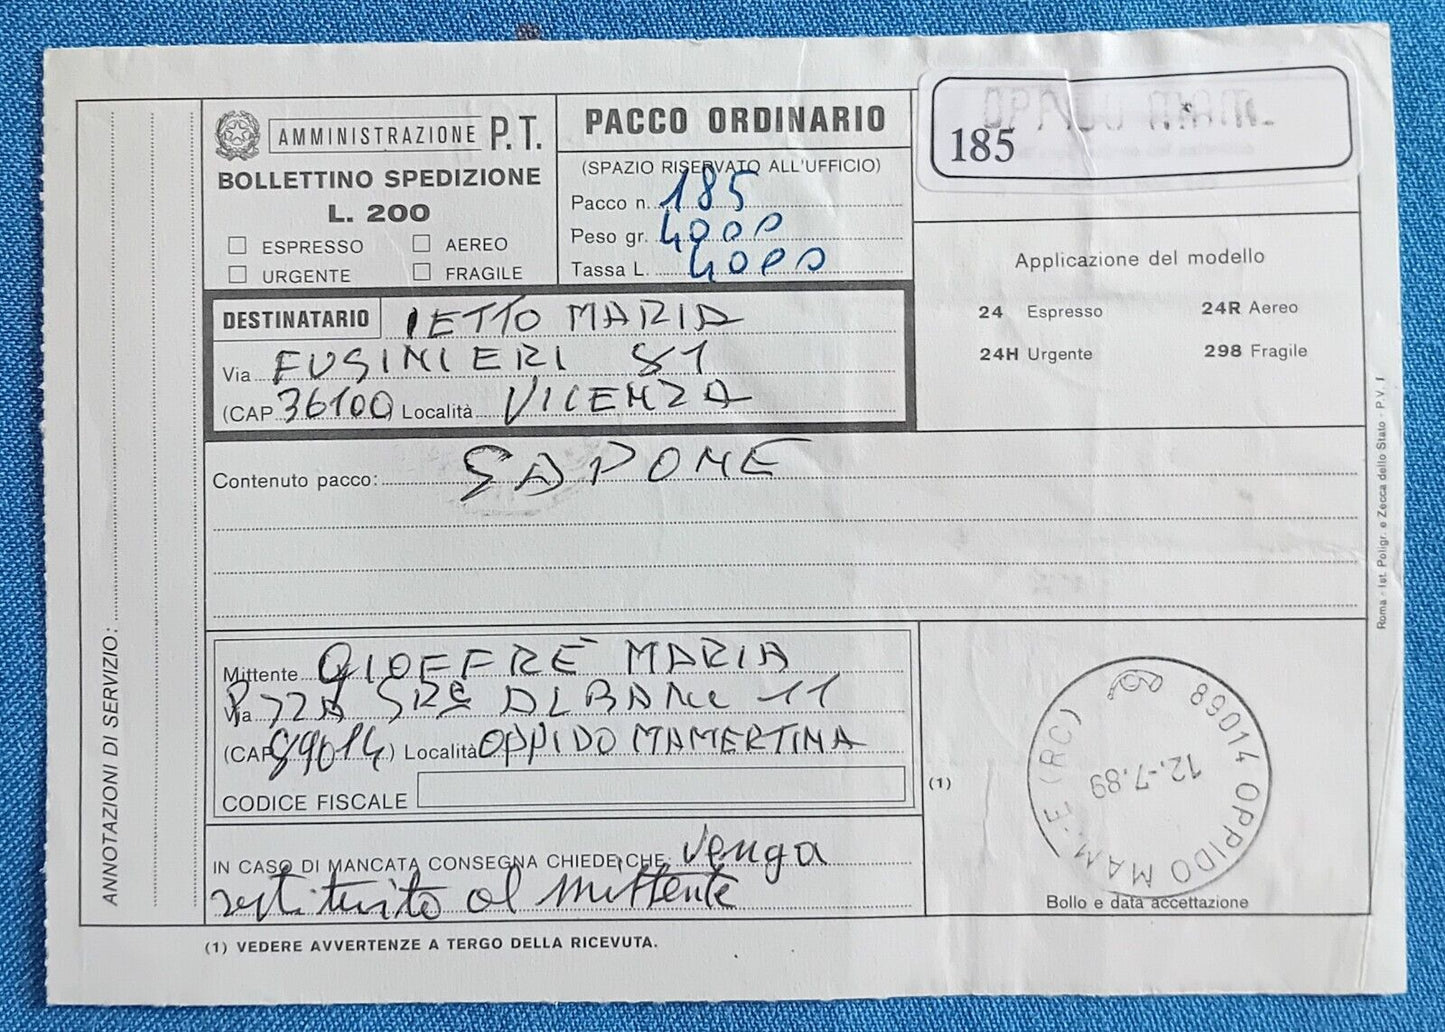 AMMINISTRAZIONE P.T.
BOLLETTINO SPEDIZIONE
L. 200
ESPRESSO AEREO
URGENTE FRAGILE
PACCO ORDINARIO
(SPAZIO RISERVATO ALL'UFFICIO)
Pacco n. 185
Peso gr. 4000
Tassa L. 4000
OPPIDO MAM.
185
Applicazione del modello
24 Espresso 24R Aereo
24H Urgente 298 Fragile
DESTINATARIO IETTO MARIA
Via FUSINIERI 81
(CAP 36100) Località VICENZA
Contenuto pacco: SAPONE
ANNOTAZIONI DI SERVIZIO:
Mittente GIOFFRÈ MARIA
Via P.ZZA SRE ALBANI 11
(CAP 89014) Località OPPIDO MAMERTINA
CODICE FISCALE
IN CASO DI MANCATA CONSEGNA CHIEDE CHE: venga
restituito al mittente
(1)
89014 OPPIDO MAM.E (RC)
12.-7.89
Bollo e data accettazione
(1) VEDERE AVVERTENZE A TERGO DELLA RICEVUTA.
Roma - Ist. Poligr. e Zecca dello Stato - P.V.